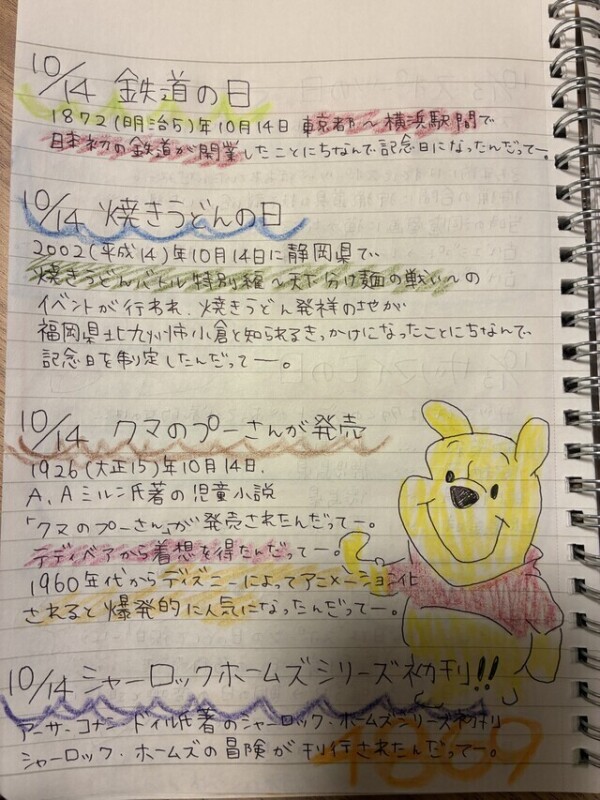 10/14 鉄道の日
1872(明治5)年10月14日 東京都〜横浜駅間で
日本初の鉄道が開業したことにちなんで記念日になったんだってー。
10/14 焼きうどんの日
2002(平成14)年10月14日に静岡県で、
焼きうどんバトル特別編〜天下分け麺の戦い〜の
イベントが行われ、焼きうどん発祥の地が
福岡県北九州市小倉と知られるきっかけになったことにちなんで、
記念日を制定したんだってー。
10/14 クマのプーさんが発売
1926(大正15)年10月14日、
A.Aミルン氏著の児童小説
「クマのプーさん」が発売されたんだってー。
テディベアから着想を得たんだってー。
1960年代からディズニーによってアニメーション化
されると爆発的に人気になったんだってー。
10/14 シャーロックホームズシリーズ初刊!!
アーサー・コナン・ドイル氏著のシャーロック・ホームズシリーズ初刊
シャーロック・ホームズの冒険が刊行されたんだってー。